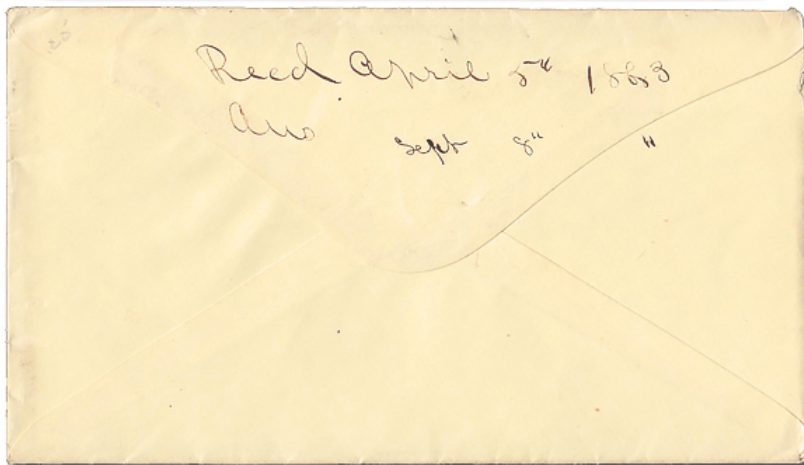 Recd April 5" 1883
Ans Sept 8" "